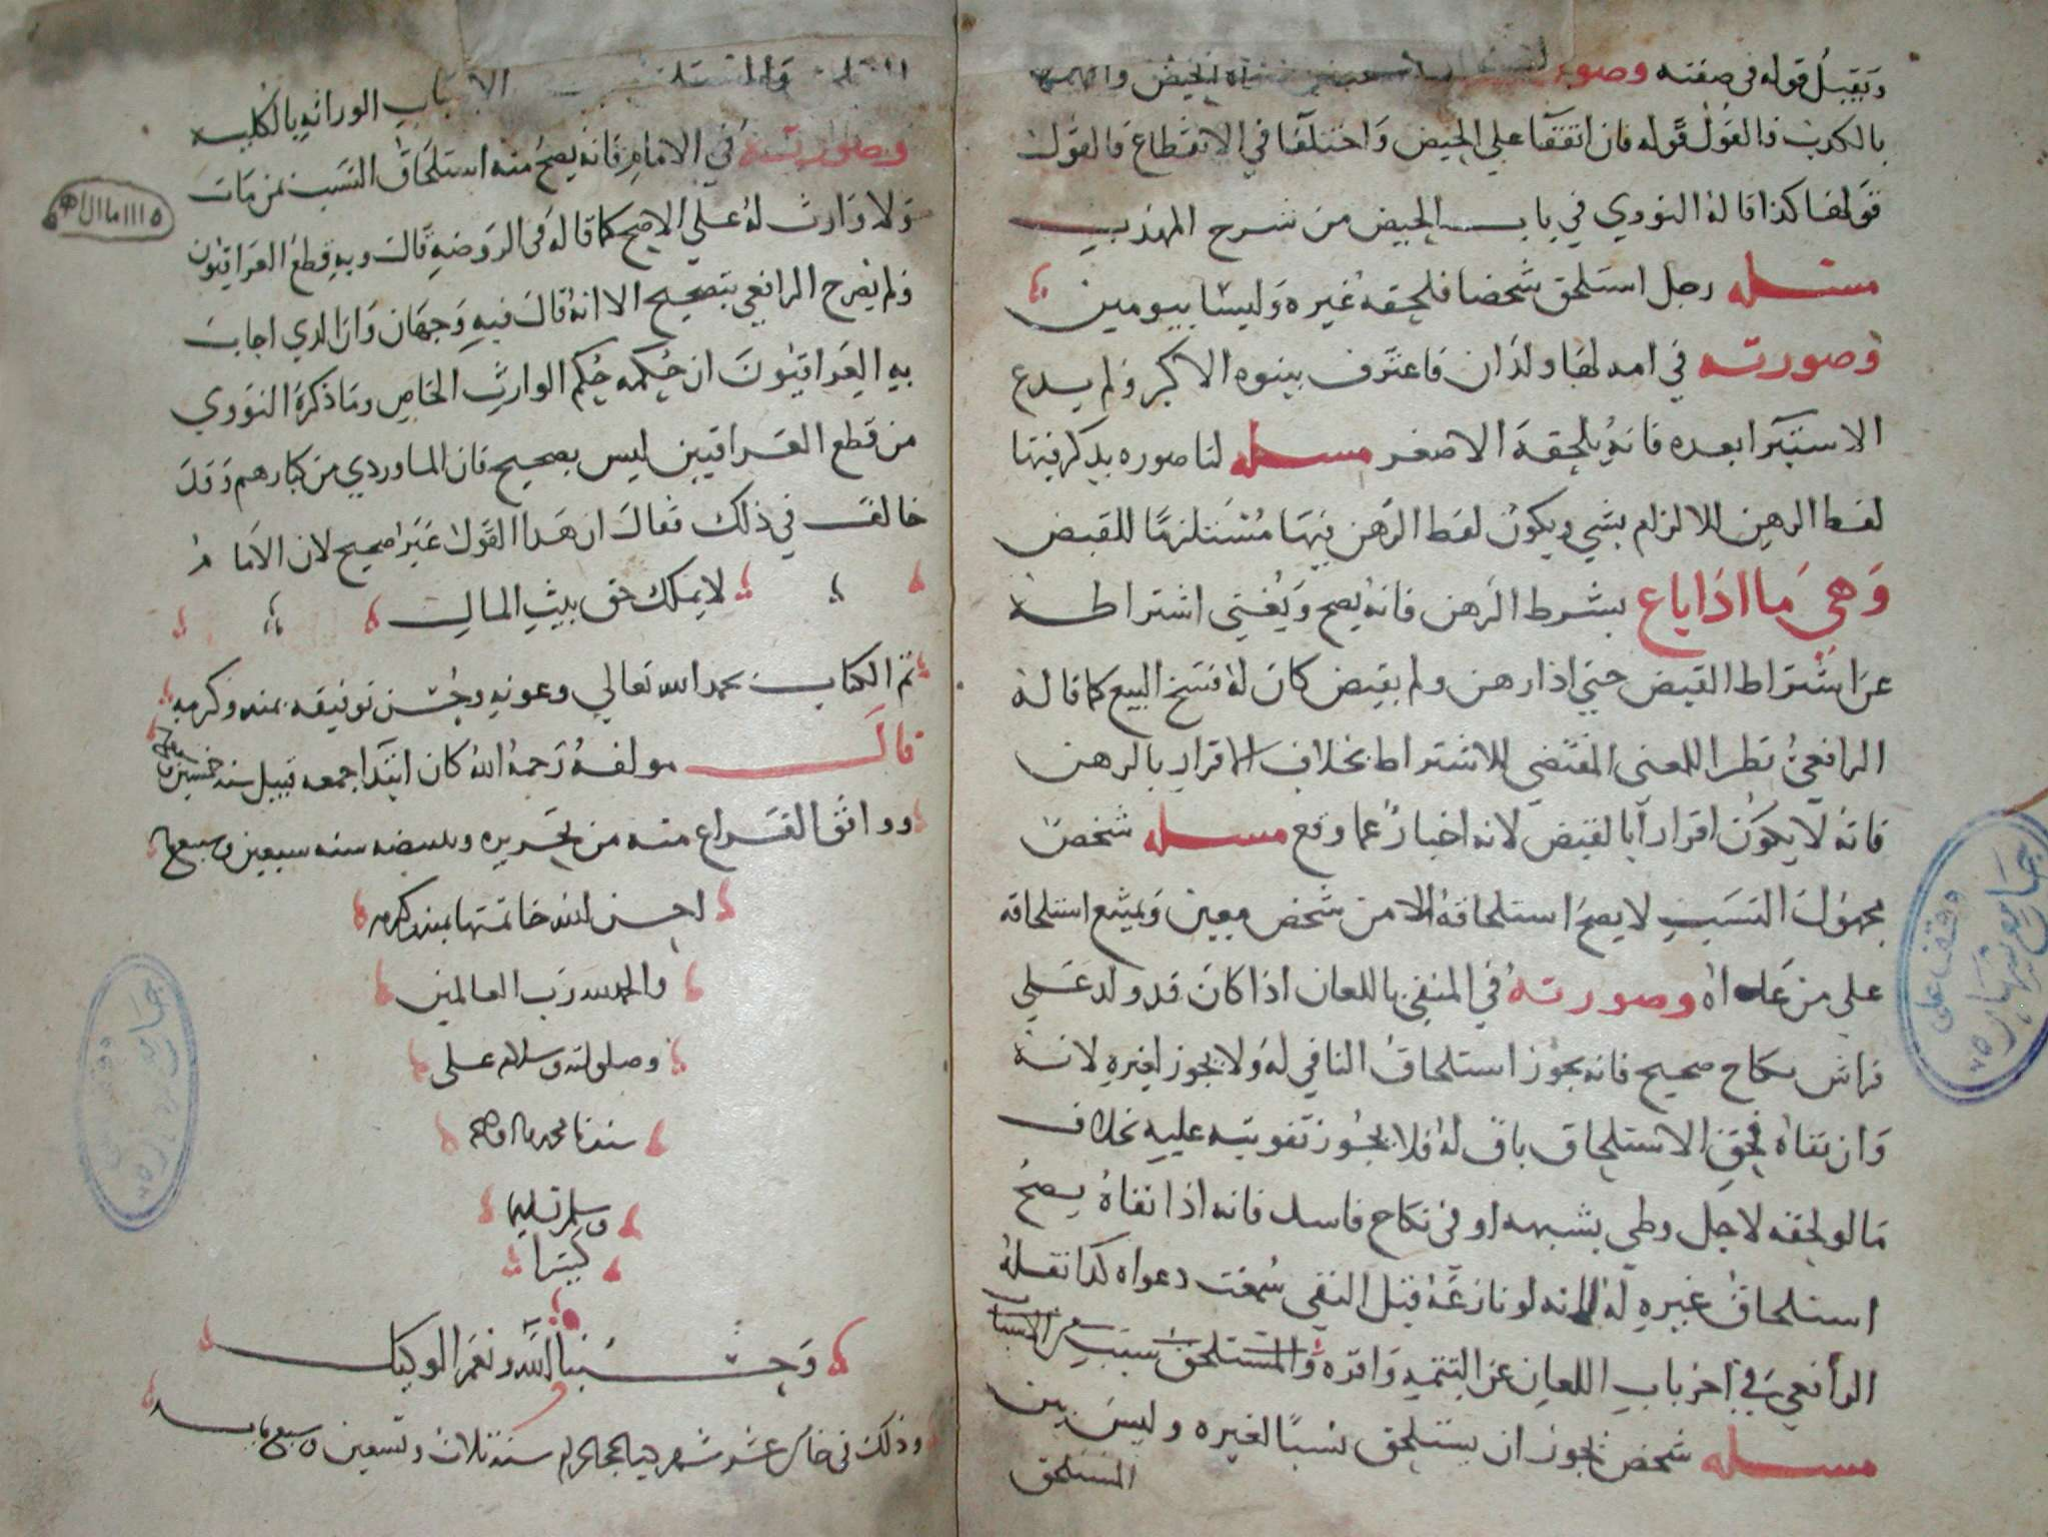 ويقبل قوله في صفته وصو الحيض واتهمها
بالكذب فالقول قوله فان اتفقا علي الحيض واختلفا في الانقطاع فالقول
قولها كذا قاله النووي في باب الحيض من شرح المهذب
مسئله رجل استلحق شخصا فلحقه غيره وليسا بيومين
وصورته في امه لها ولدان فاعترف ببنوه الاكبر ولم يدع
الاستبرا بعده فانه يلحقه الاصغر مسله لنا صوره يذكر فيها
لفظ الرهن للالزام بشي ويكون لفظ الرهن فيها مستلزما للقبض
وهي ما اذا باع بشرط الرهن فانه يصح ويغني اشتراطه
عن اشتراط القبض حتي اذا رهن ولم يقبض كان له فسخ البيع كما قاله
الرافعي نظرا للمعني المقتضي للاشتراط بخلاف الاقرار بالرهن
فانه لا يكون اقرارا بالقبض لانه اخبار عما وقع مسله شخص
مجهول النسب لا يصح استلحاقه الا من شخص معين ويمتنع استلحاقه
علي من عداه وصورته في المنفي باللعان اذا كان قد ولد علي
فراش نكاح صحيح فانه يجوز استلحاق النافي له ولا يجوز لغيره لانه
وان نفاه فحق الاستلحاق باق له فلا يجوز تفويته عليه بخلاف
ما لو لحقه لاجل وطي بشبهه او في نكاح فاسد فانه اذا نفاه يصح
استلحاق غيره له لانه لو نازعه قبل النفي سمعت دعواه كذا نقله
الرافعي في اخر باب اللعان عن التتمه واقره والمستلحق سبب من الاسباب
مسله شخص يجوز ان يستلحق نسبا لغيره وليس بين
المستلحق
والمستلحق الاسباب الوراثه بالكليه
وصورته في الامام فانه يصح منه استلحاق النسب بمن مات
ولا وارث له علي الاصح كما قاله في الروضه قال وبه قطع العراقيون
ولم يصرح الرافعي بتصحيح الا انه قال فيه وجهان وان الذي اجاب
به العراقيون ان حكمه حكم الوارث الخاص وما ذكره النووي
من قطع العراقيين ليس بصحيح فان الماوردي من كبارهم وقد
خالف في ذلك فقال ان هذا القول غير صحيح لان الامام
لا يملك حق بيت المال
تم الكتاب بحمد الله تعالي وعونه وحسن توفيقه بمنه وكرمه
قال مولفه رحمه الله كان ابتدا جمعه قبيل سنه خمسين
ووافق الفراغ منه من تحريره وتبييضه سنه سبعين وسبعمايه
احسن الله خاتمتها بمنه وكرمه
والحمد لله رب العالمين
وصلي الله وسلام علي
سيدنا محمد واله وصحبه
وسلم تسليما
كثيرا
وحسبنا الله ونعم الوكيل
وذلك في خامس عشر شهر ذي الحجه الحرام سنة ثلاث وتسعين وسبعمايه
وقف علي